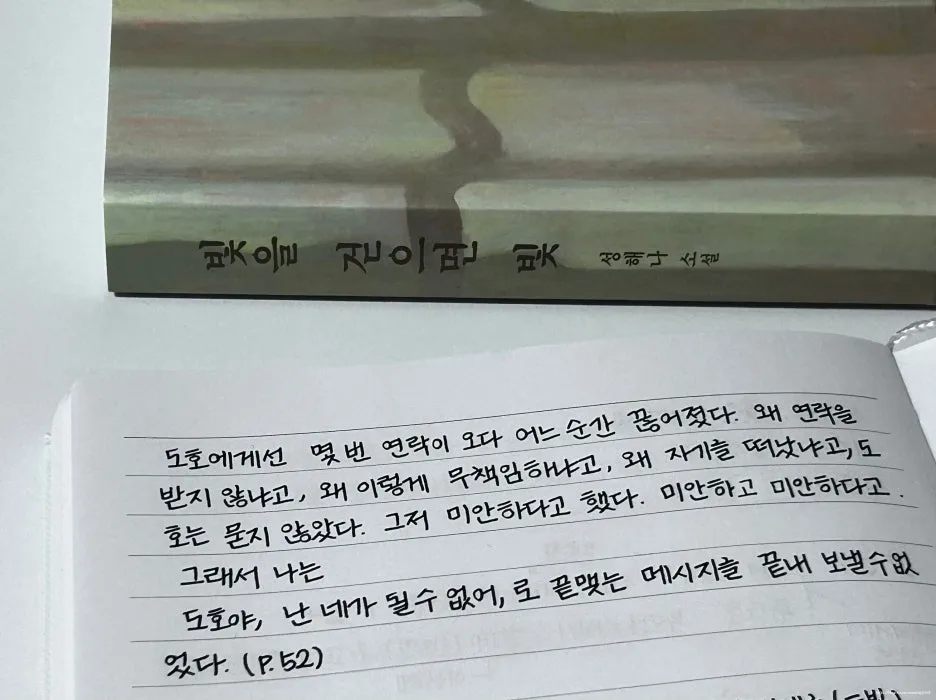 빛을 걷으면 빛 성해나 소설
도호에게선 몇 번 연락이 오다 어느 순간 끊어졌다. 왜 연락을
받지 않냐고, 왜 이렇게 무책임하냐고, 왜 자기를 떠났냐고, 도
호는 묻지 않았다. 그저 미안하다고 했다. 미안하고 미안하다고.
그래서 나는
도호야, 난 네가 될 수 없어, 로 끝맺는 메시지를 끝내 보낼 수 없
었다. (P.52)